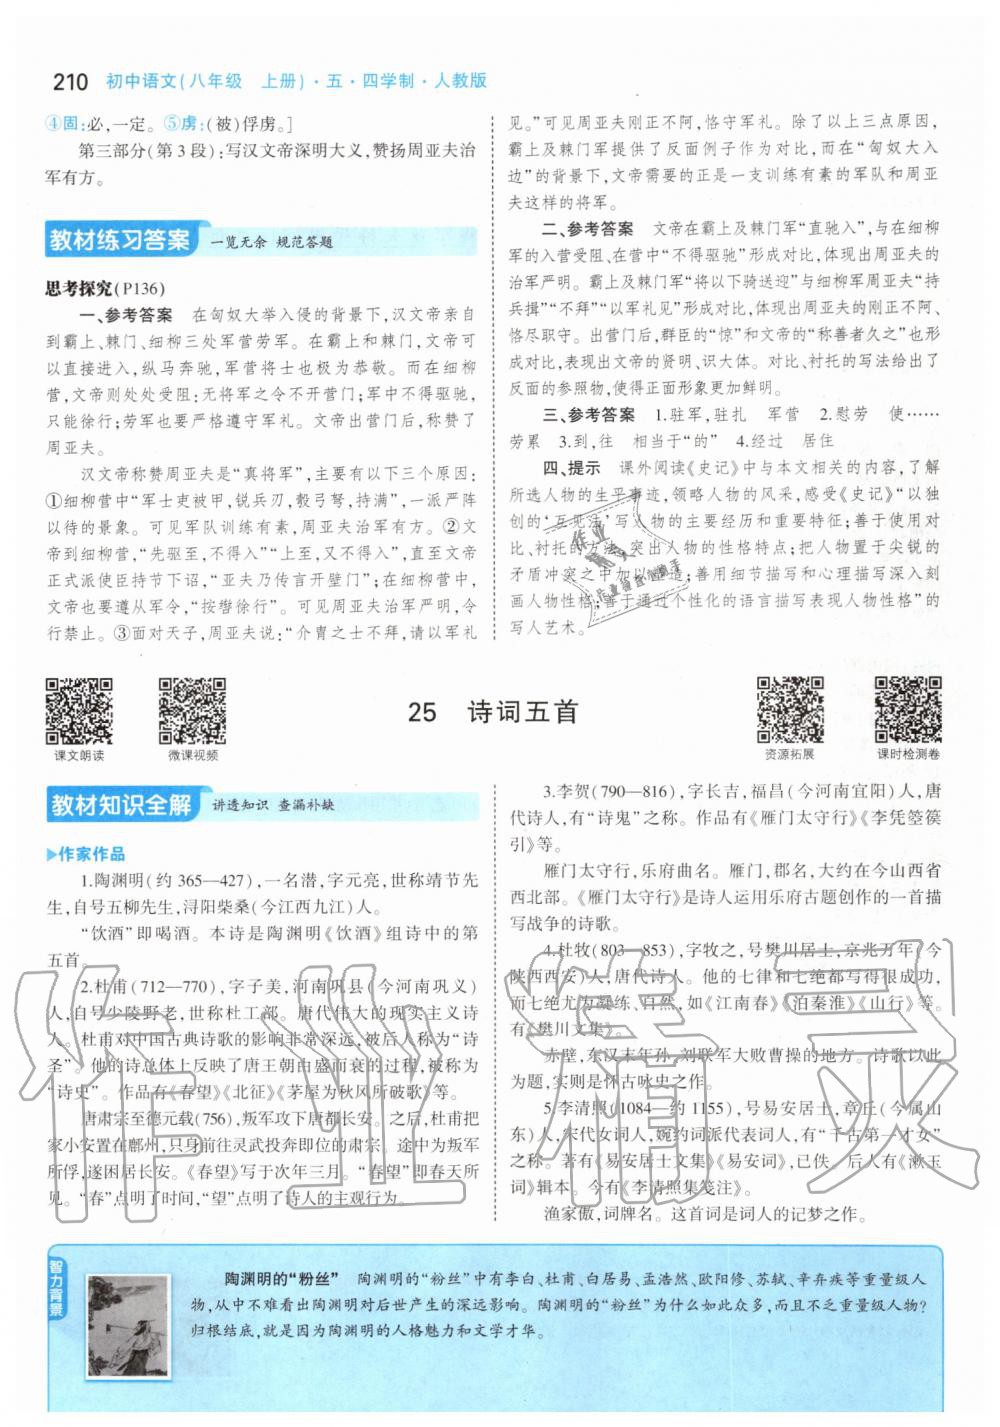 210 初中语文(八年级 上册)·五·四学制·人教版
④固:必,一定。⑤虏:(被)俘虏。]
第三部分(第3段):写汉文帝深明大义,赞扬周亚夫治
军有方。
教材练习答案 一览无余 规范答题
思考探究(P136)
一、参考答案 在匈奴大举入侵的背景下,汉文帝亲自
到霸上、棘门、细柳三处军营劳军。在霸上和棘门,文帝可
以直接进入,纵马奔驰,军营将士也极为恭敬。而在细柳
营,文帝则处处受阻;无将军之令不开营门;军中不得驱驰,
只能徐行;劳军也要严格遵守军礼。文帝出营门后,称赞了
周亚夫。
汉文帝称赞周亚夫是“真将军”,主要有以下三个原因:
①细柳营中“军士吏被甲,锐兵刃,彀弓弩,持满”,一派严阵
以待的景象。可见军队训练有素,周亚夫治军有方。②文
帝到细柳营,“先驱至,不得入”“上至,又不得入”,直至文帝
正式派使臣持节下诏,“亚夫乃传言开壁门”;在细柳营中,
文帝也要遵从军令,“按辔徐行”。可见周亚夫治军严明,令
行禁止。③面对天子,周亚夫说:“介胄之士不拜,请以军礼
见。”可见周亚夫刚正不阿,恪守军礼。除了以上三点原因,
霸上及棘门军提供了反面例子作为对比,而在“匈奴大入
边”的背景下,文帝需要的正是一支训练有素的军队和周亚
夫这样的将军。
二、参考答案 文帝在霸上及棘门军“直驰入”,与在细柳
军的入营受阻、在营中“不得驱驰”形成对比,体现出周亚夫的
治军严明。霸上及棘门军“将以下骑送迎”与细柳军周亚夫“持
兵揖”“不拜”“以军礼见”形成对比,体现出周亚夫的刚正不阿、
恪尽职守。出营门后,群臣的“惊”和文帝的“称善者久之”也形
成对比,表现出文帝的贤明、识大体。对比、衬托的写法给出了
反面的参照物,使得正面形象更加鲜明。
三、参考答案 1.驻军,驻扎 军营 2.慰劳 使……
劳累 3.到,往 相当于“的” 4.经过 居住
四、提示 课外阅读《史记》中与本文相关的内容,了解
所选人物的生平事迹,领略人物的风采,感受《史记》“以独
创的‘互见法’写人物的主要经历和重要特征;善于使用对
比、衬托的方法,突出人物的性格特点;把人物置于尖锐的
矛盾冲突之中加以塑造;善用细节描写和心理描写深入刻
画人物性格;善于通过个性化的语言描写表现人物性格”的
写人艺术。
课文朗读
微课视频
25 诗词五首
资源拓展
课时检测卷
教材知识全解 讲透知识 查漏补缺
作家作品
1.陶渊明(约365—427),一名潜,字元亮,世称靖节先
生,自号五柳先生,浔阳柴桑(今江西九江)人。
“饮酒”即喝酒。本诗是陶渊明《饮酒》组诗中的第
五首。
2.杜甫(712—770),字子美,河南巩县(今河南巩义)
人,自号少陵野老,世称杜工部。唐代伟大的现实主义诗
人。杜甫对中国古典诗歌的影响非常深远,被后人称为“诗
圣”。他的诗总体上反映了唐王朝由盛而衰的过程,被称为
“诗史”。作品有《春望》《北征》《茅屋为秋风所破歌》等。
唐肃宗至德元载(756),叛军攻下唐都长安。之后,杜甫把
家小安置在鄜州,只身前往灵武投奔即位的肃宗。途中为叛军
所俘,遂困居长安。《春望》写于次年三月。“春望”即春天所
望。“春”点明了时间,“望”点明了诗人的主观行为。
3.李贺(790—816),字长吉,福昌(今河南宜阳)人,唐
代诗人,有“诗鬼”之称。作品有《雁门太守行》《李凭箜篌
引》等。
雁门太守行,乐府曲名。雁门,郡名,大约在今山西省
西北部。《雁门太守行》是诗人运用乐府古题创作的一首描
写战争的诗歌。
4.杜牧(803—853),字牧之,号樊川居士,京兆万年(今
陕西西安)人,唐代诗人。他的七律和七绝都写得很成功,
而七绝尤为凝练、自然,如《江南春》《泊秦淮》《山行》等。
有《樊川文集》。
赤壁,东汉末年孙、刘联军大败曹操的地方。诗歌以此
为题,实则是怀古咏史之作。
5.李清照(1084—约1155),号易安居士,章丘(今属山
东)人,宋代女词人,婉约词派代表词人,有“千古第一才女”
之称。著有《易安居士文集》《易安词》,已佚。后人有《漱玉
词》辑本。今有《李清照集笺注》。
渔家傲,词牌名。这首词是词人的记梦之作。
智力背景
陶渊明的“粉丝” 陶渊明的“粉丝”中有李白、杜甫、白居易、孟浩然、欧阳修、苏轼、辛弃疾等重量级人
物,从中不难看出陶渊明对后世产生的深远影响。陶渊明的“粉丝”为什么如此众多,而且不乏重量级人物?
归根结底,就是因为陶渊明的人格魅力和文学才华。
作业精灵